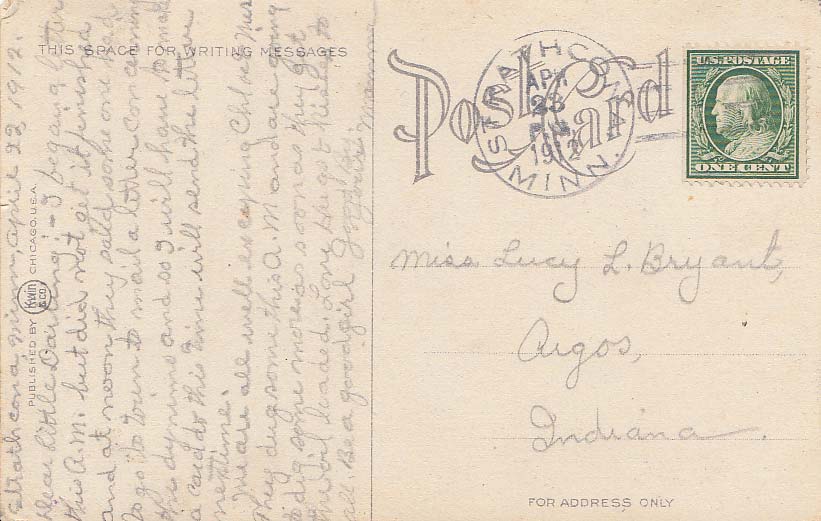 THIS SPACE FOR WRITING MESSAGES
Post Card
STRATHCONA
APR
23
P.M.
1912
MINN.
U.S. POSTAGE
ONE CENT
Strathcona, Minn, April 23, 1912.
Dear Little Darling:- I began a letter
this A.M. but did not get it finished
and at noon they said some one had
to go to town to mail a letter concerning
the dynamo and so I will have to make
a card do this time will send the letter
next time.
We are all well excepting
They dug some this A.M. and are going
to dig some more as soon as they get
the soil loaded. Love hugs & kisses to
all. Be a good girl Good by
Mamma
Miss Lucy L. Bryant,
Argos,
Indiana.
PUBLISHED BY Kwin & Co CHICAGO, U.S.A.
FOR ADDRESS ONLY